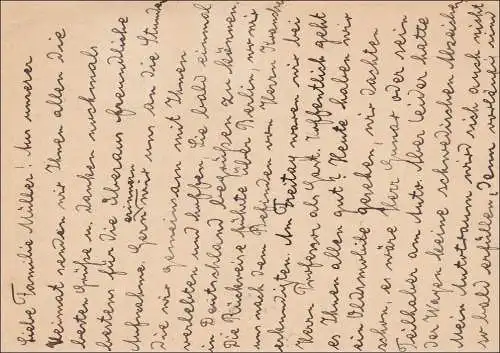 Liebe Familie Müller! Aus unserer
Heimat senden wir Ihnen allen die
besten Grüße u. danken nochmals
bestens für die überaus freundliche
Aufnahme. Gern erinnern wir uns an die Stunden
die wir gemeinsam mit Ihnen
verlebten und hoffen, Sie bald einmal
in Deutschland begrüßen zu können.
Die Rückreise führte über Berlin, wo wir
uns nach dem Befinden von Herrn
erkundigten. Am Freitag waren wir bei
Herrn Professor als Gast. Hoffentlich geht
es Ihnen allen gut? Heute haben wir
ein Oldsmobile gesehen, wir dachten
schon, es wäre Herr Gunar oder sein
Teilhaber am Auto. Aber leider hatte
der Wagen keine schwedischen Abzeichen
Mein Autotraum wird sich auch nicht
so bald erfüllen. Denn